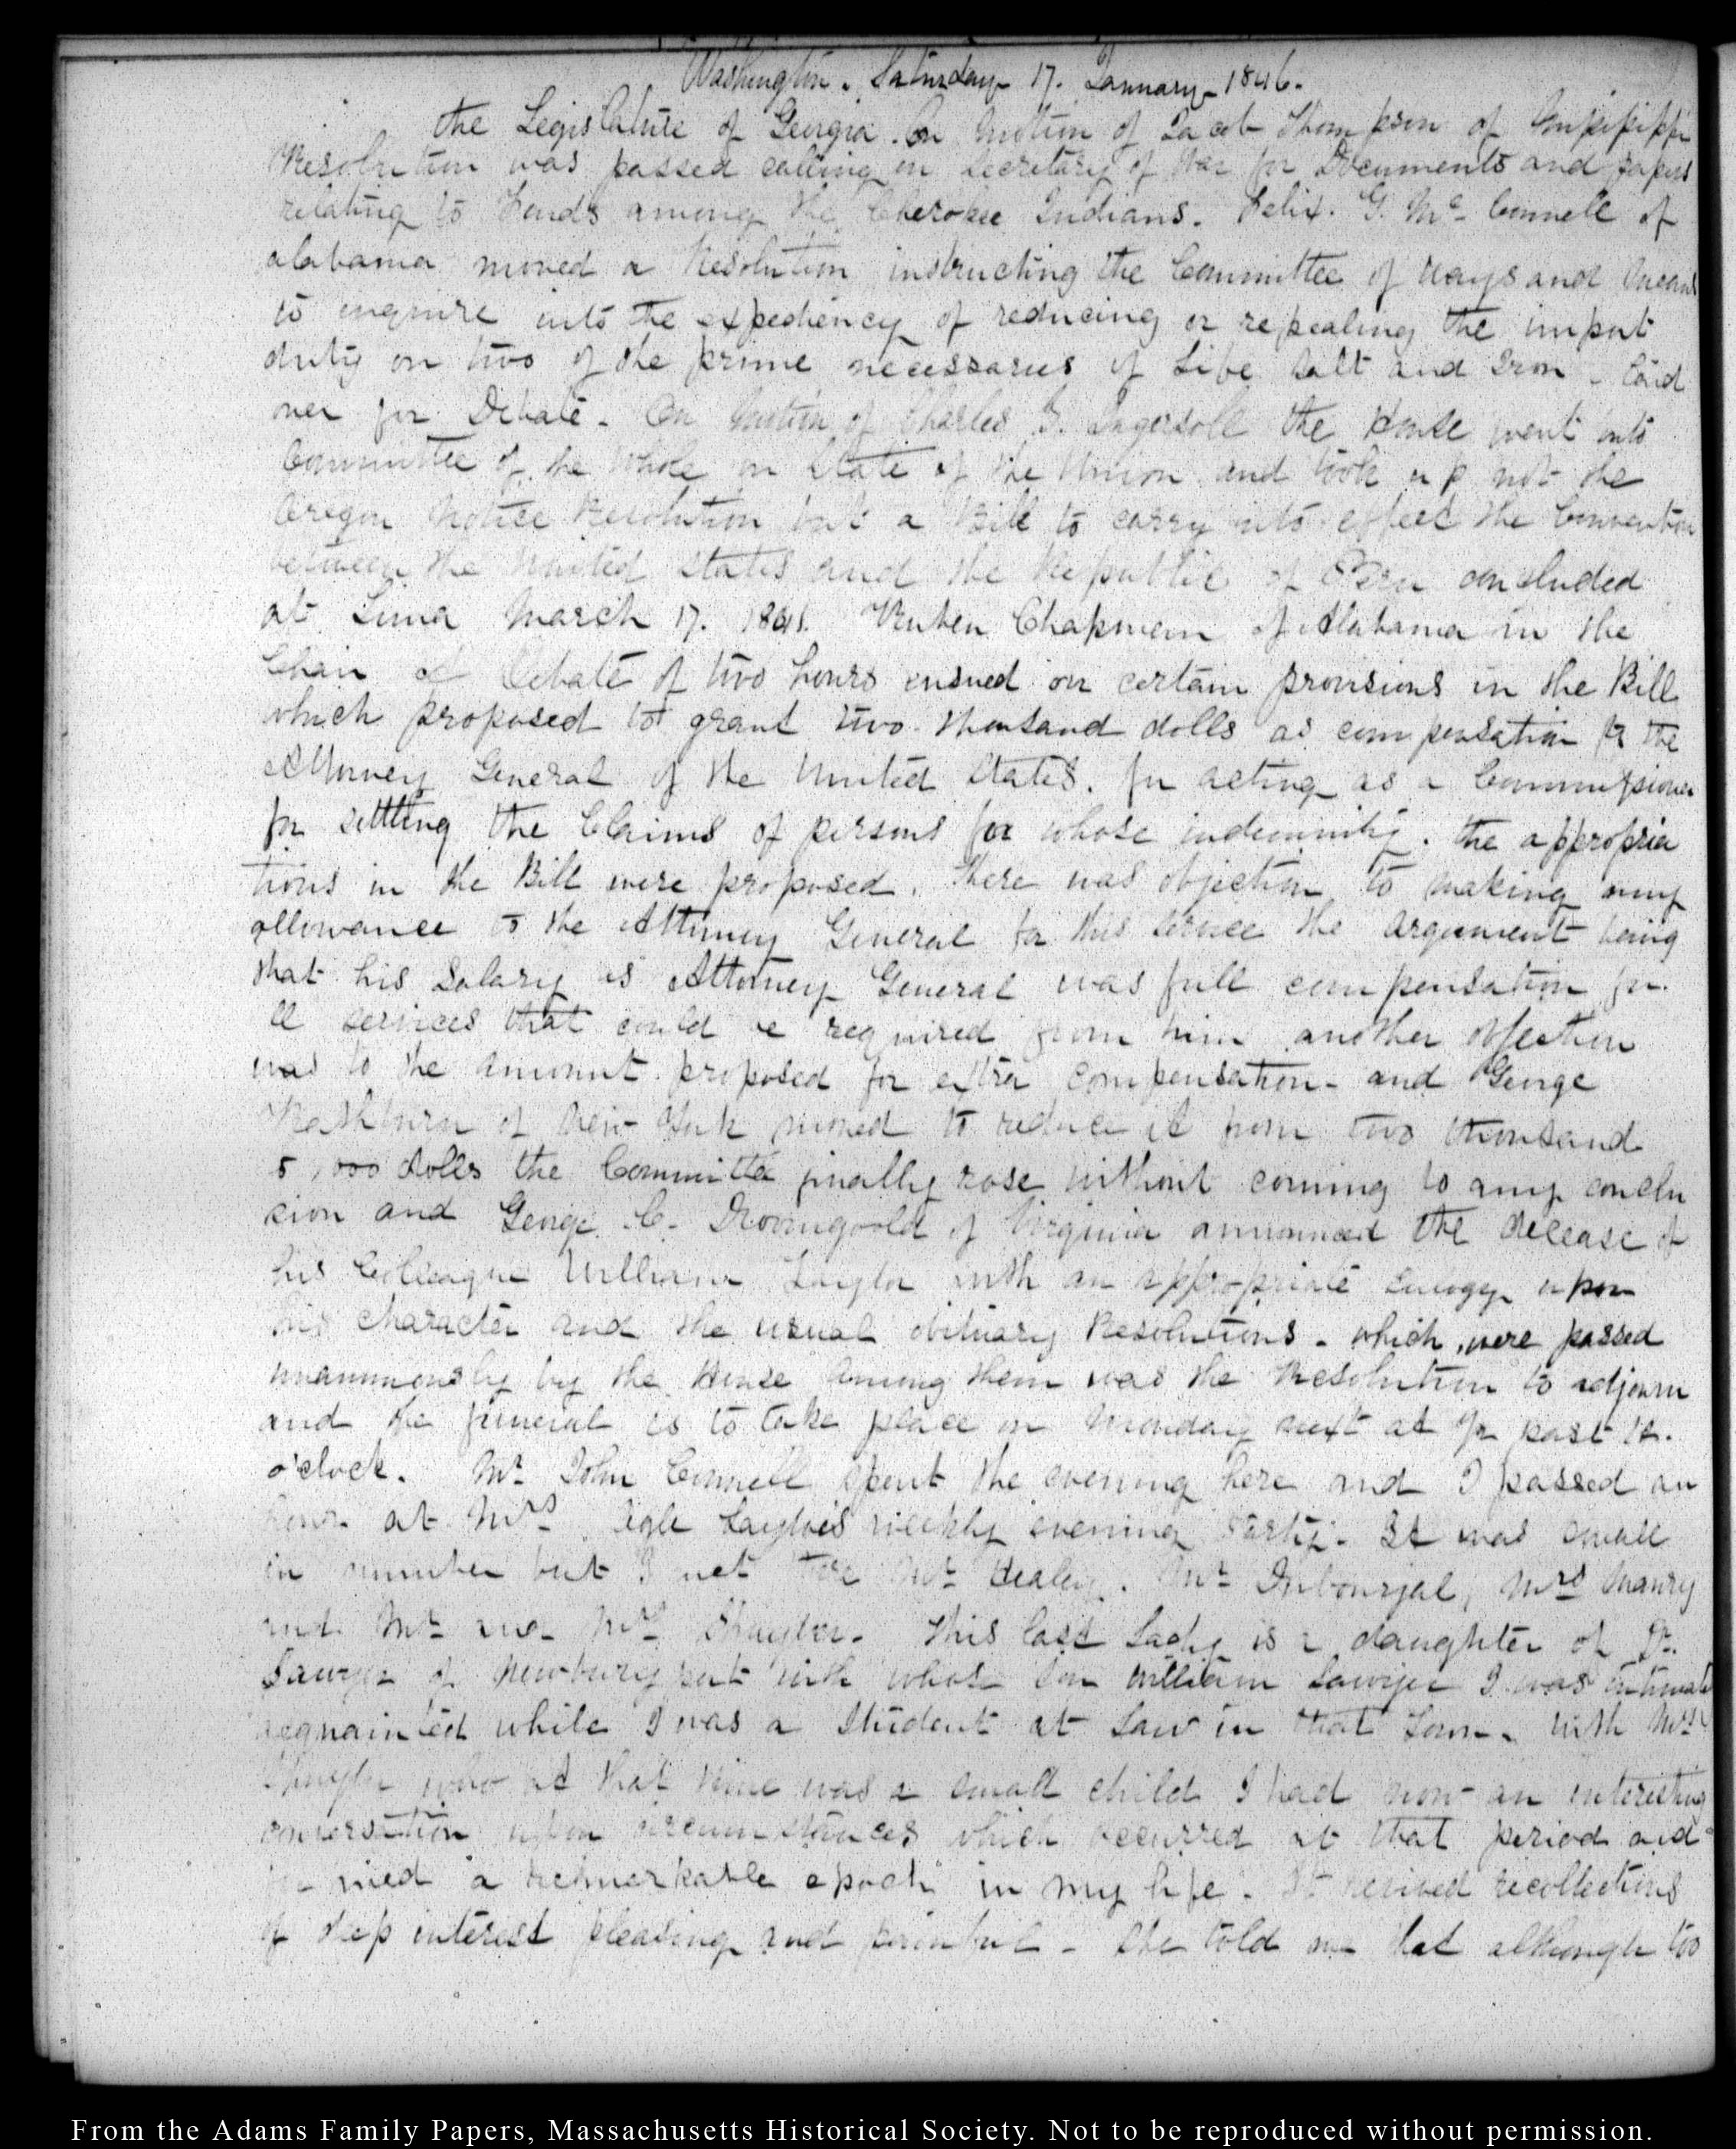 Washington. Saturday 17. January 1846.
the Legislature of Georgia. On motion of Jacob Thompson of Missisippi
Resolution was passed calling on Secretary of War for Documents and papers
relating to Feuds among the Cherokee Indians. Felix. G. Mc Connell of
alabama moved a Resolution instructing the Committee of ways and means
to enquire into the expediency of reducing or repealing the impost
duty on two of the prime necessaries of Life Salt and Iron - laid
over for Debate. On motion of Charles J. Ingersoll the House went into
Committee of the whole on State of the Union and took up not the
Oregon Notice Resolution but a Bill to carry into effect the Convention
between the United States and the Republic of Peru concluded
at Lima March 17. 1841. Reuben Chapman of Alabama in the
Chair a Debate of two hours ensued on certain provisions in the Bill
which proposed to grant two thousand dolls as compensation to the
Attorney General of the United States. for acting as a Commissioner
for settling the Claims of persons for whose indemnity. the appropria
tions in the Bill were proposed. There was objection to making any
allowance to the Attorney General for this service the argument being
that his Salary as Attorney General was full compensation for.
all services that could be required from him another objection
was to the amount proposed for extra compensation - and George
Rathburn of New York moved to reduce it from two thousand
to 1,000 dolls the Committee finally rose without coming to any conclu
sion and George. C. Dromgoold of Virginia announced the decease of
his Colleague William Taylor with an appropriate Eulogy upon
his character and the usual obituary Resolutions - which were passed
unanimously by the House among them was the Resolution to adjourn
and the funeral is to take place on Monday next at 1/2 past 12.
o'clock. Mr John Connell spent the evening here and I passed an
hour at Mrs Ogle Tayloe's weekly evening Party. It was small
in number but I met there Mr Healey. Mr Dubourjal, Mrs Maury
and Mr and Mrs Thayler. This last Lady is a daughter of Dr.
Sawyer of Newburyport with whose Son William Sawyer I was intimately
acquainted while I was a Student at Law in that Town. with Mrs
who at that time was a small child I had now an interesting
conversation upon circumstances which occurred at that period and
formed a remarkable epoch in my life. It revived recollections
of deep interest pleasing and painful - She told me that although too
From the Adams Family Papers, Massachusetts Historical Society. Not to be reproduced without permission.